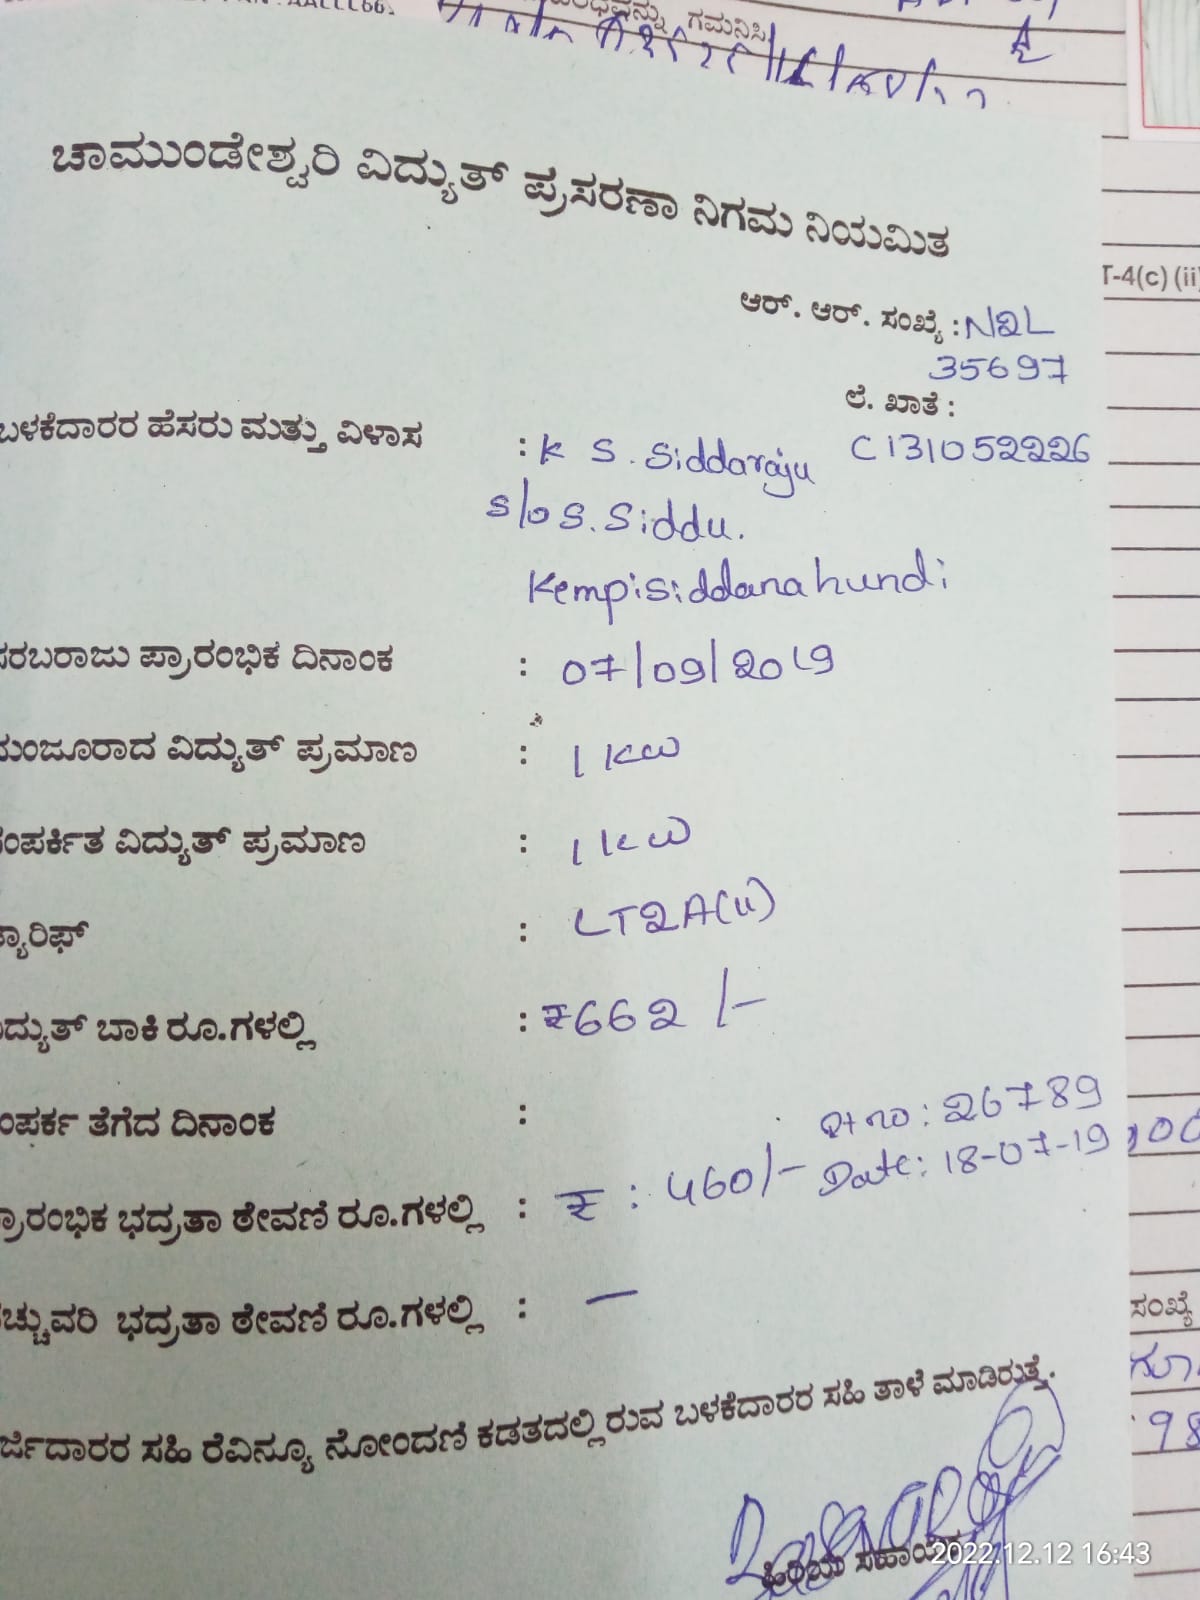 ಗಮನಿಸಿ
ಚಾಮುಂಡೇಶ್ವರಿ ವಿದ್ಯುತ್ ಪ್ರಸರಣಾ ನಿಗಮ ನಿಯಮಿತ
T-4(c) (ii)
ಆರ್. ಆರ್. ಸಂಖ್ಯೆ : N2L
35697
ಲೆ. ಖಾತೆ :
C131052226
ಬಳಕೆದಾರರ ಹೆಸರು ಮತ್ತು ವಿಳಾಸ : K S. Siddaraju
S/o S. Siddu.
Kempisiddanahundi
ಸರಬರಾಜು ಪ್ರಾರಂಭಿಕ ದಿನಾಂಕ : 07/09/2019
ಮಂಜೂರಾದ ವಿದ್ಯುತ್ ಪ್ರಮಾಣ : 1 KW
ಸಂಪರ್ಕಿತ ವಿದ್ಯುತ್ ಪ್ರಮಾಣ : 1 KW
ಟ್ಯಾರಿಫ್ : LT2A(ii)
ವಿದ್ಯುತ್ ಬಾಕಿ ರೂ.ಗಳಲ್ಲಿ : ₹662 /-
ಸಂಪರ್ಕ ತೆಗೆದ ದಿನಾಂಕ :
Rt no: 26789
ಪ್ರಾರಂಭಿಕ ಭದ್ರತಾ ಠೇವಣಿ ರೂ.ಗಳಲ್ಲಿ : ₹ : 460/- Date: 18-07-19
ಹೆಚ್ಚುವರಿ ಭದ್ರತಾ ಠೇವಣಿ ರೂ.ಗಳಲ್ಲಿ : —
ಸಂಖ್ಯೆ
ಅರ್ಜಿದಾರರ ಸಹಿ ರೆವಿನ್ಯೂ ನೋಂದಣಿ ಕಡತದಲ್ಲಿರುವ ಬಳಕೆದಾರರ ಸಹಿ ತಾಳೆ ಮಾಡಿರುತ್ತೆ.
98
ಹಿರಿಯ ಸಹಾಯಕ
2022.12.12 16:43